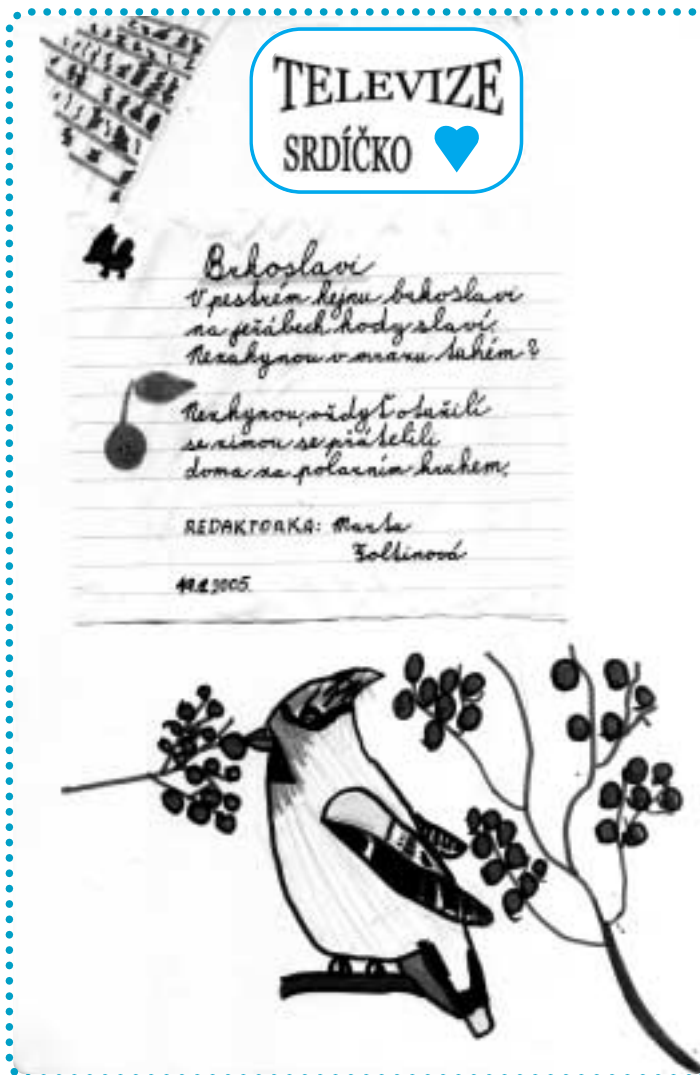 TELEVIZE
SRDÍČKO
Brkoslavi
V pestrém hejnu brkoslavi
na jeřábech hody slaví.
Nezahynou v mrazu tuhém?
Nezhynou, vždyť otužilí
se zimou se přátelili
doma za polárním kruhem.
REDAKTORKA: Marta
Foltinová
2005